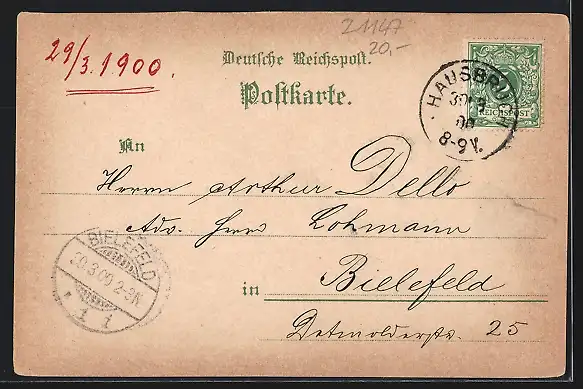 Z 1147
20,-
29/3. 1900.
Deutsche Reichspost.
Postkarte.
HAUSBRUCH
30 3
00
8-9V.
REICHSPOST
An
Herrn Arthur Dello
Adr. Herrn Lohmann
BIELEFELD
30.3.00.2-3N
1 i
in Bielefeld
Detmolderstr. 25